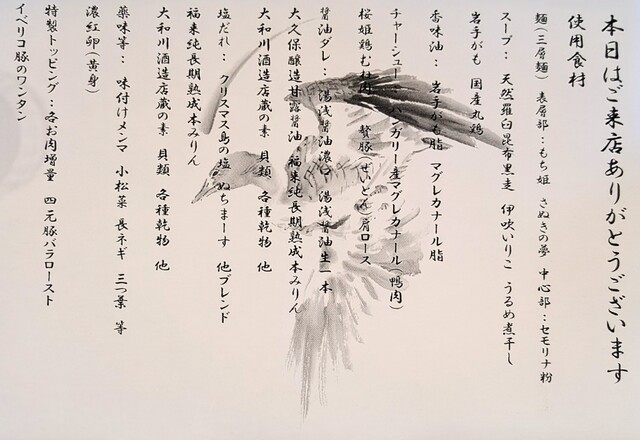 本日はご来店ありがとうございます
使用食材
麺(三層麺) 表層部:もち姫 さぬきの夢 中心部:セモリナ粉
スープ: 天然羅臼昆布黒走 伊吹いりこ うるめ煮干し
岩手がも 国産丸鶏
香味油: 岩手がも脂 マグレカナール脂
チャーシュー: ハンガリー産マグレカナール(鴨肉)
桜姫鶏むね肉 贅豚(ぜいとん)肩ロース
醤油ダレ: 湯浅醤油濃口 湯浅醤油生一本
大久保醸造甘露醤油 福来純長期熟成本みりん
大和川酒造店蔵の素 貝類 各種乾物 他
塩だれ: クリスマス島の塩 ぬちまーす 他ブレンド
福来純長期熟成本みりん
大和川酒造店蔵の素 貝類 各種乾物 他
薬味等: 味付けメンマ 小松菜 長ネギ 三つ葉 等
濃紅卵(黄身)
特製トッピング:各お肉増量 四元豚バラロースト
イベリコ豚のワンタン